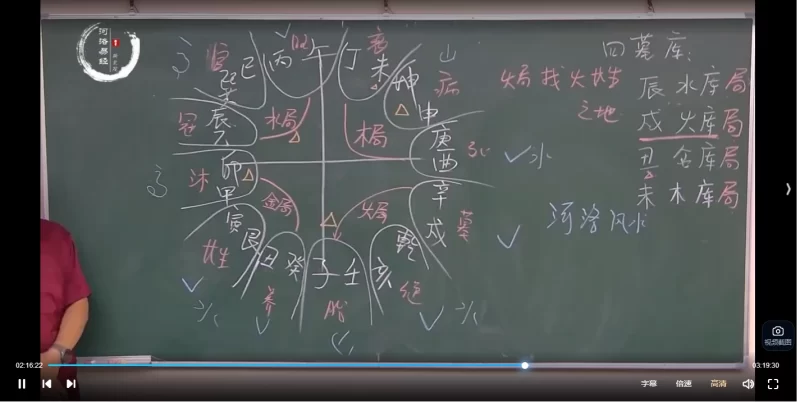 河洛易经
四墓库:
火局找火长生
之地
辰水库局
戌火库局
丑金库局
未木库局
河洛风水
冠
辰
乙
水局
沐
卯
甲
金局
长生
寅
艮
丑癸
养
子壬
胎
亥
乾
绝
辛
戌
墓
火局
庚
酉
死
水
坤
申
病
丁
未
衰
木局
丙午
旺
巽
巳
官
视频截图
02:16:22
03:19:30
字幕
倍速
高清